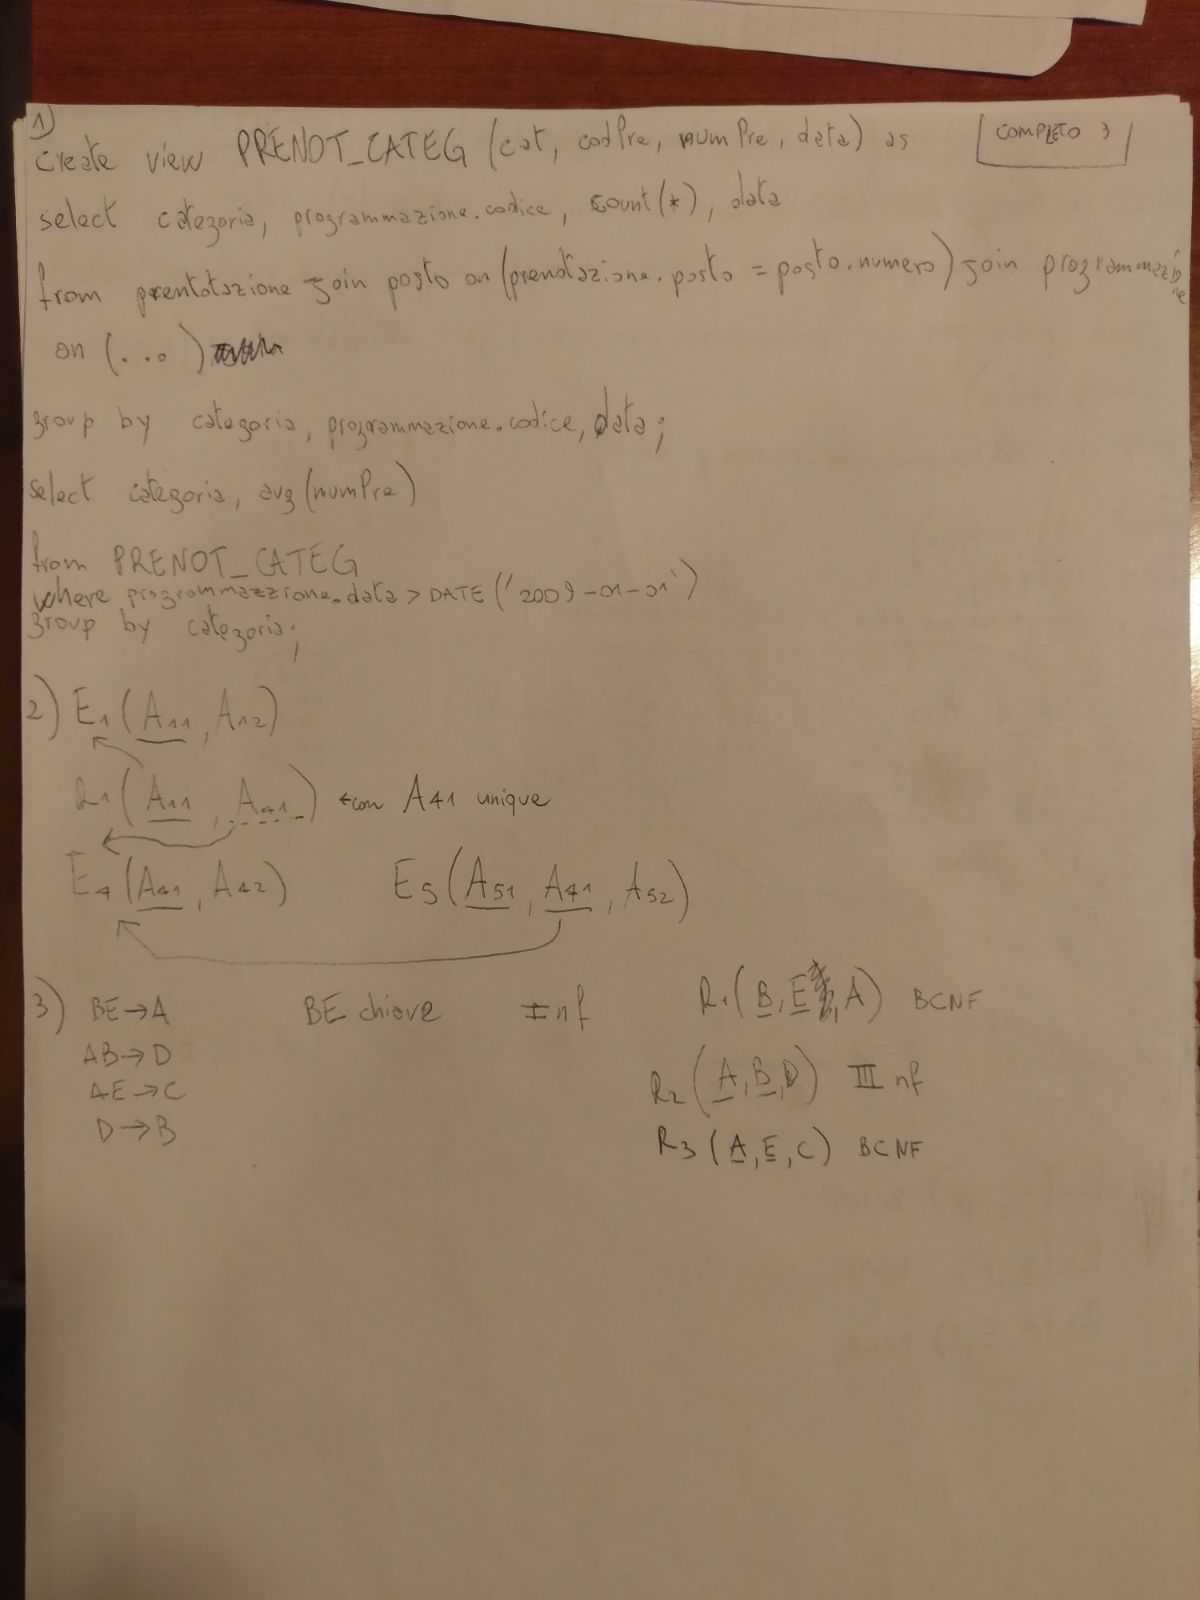 1)
COMPLETO 3
create view PRENOT_CATEG (cat, codPre, numPre, data) as
select categoria, programmazione.codice, count(*), data
from prentotazione join posto on (prenotazione.posto = posto.numero) join programmazione
on (...)
group by categoria, programmazione.codice, data;
select categoria, avg(numPre)
from PRENOT_CATEG
where programmazzione.data > DATE ('2009-01-01')
group by categoria;
2) E1 (A11, A12)
R1 (A11, A41) ← con A41 unique
E4 (A41, A42) E5 (A51, A41, A52)
3) BE→A BE chiave I nf R1 (B, E, A) BCNF
AB→D R2 (A, B, D) III nf
AE→C
D→B R3 (A, E, C) BCNF